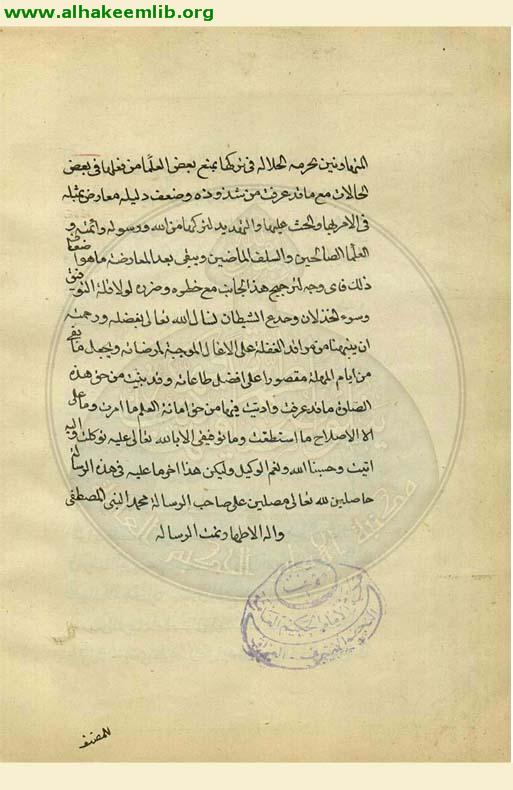 www.alhakeemlib.org
المتهاونين بحرمة الجلالة في تركها بمنع بعض العلما من فعلها في بعض
الحالات مع ما قد عرفت من شذوذه وضعف دليله ومعارض بمثله
في الامر بها والحث عليها والتهديد لتركها من الله ورسوله وائمته و
العلما الصالحين والسلف الماضين ويبقى بعد المعارضة ما هو اضعاف
ذلك فاى وجه لترجيح هذا الجانب مع خطره وضرره لولا قلة التوفيق
وسوء الخذلان وخدع الشيطان نسال الله تعالى بفضله ورحمته
ان ينبهنا من مراقد الغفلة على الافعال الموجبة لمرضاته ويجعل ما بقى
من ايام المهلة مقصورا على افضل طاعاته وقد بينت من حق هذه
الصلوة ما قد عرفت واديت فيها من حق امانة العلم ما امرت وما على
الا الاصلاح ما استطعت وما توفيقى الا بالله تعالى عليه توكلت واليه
انيب وحسبنا الله ونعم الوكيل وليكن هذا اخر ما عليه في هذه الرسالة
حامدين لله تعالى مصلين على صاحب الرسالة محمد النبى المصطفى
واله الاطهار وتمت الرسالة
مكتبة الامام الحكيم العامة
النجف الاشرف - العراق
للمصنف